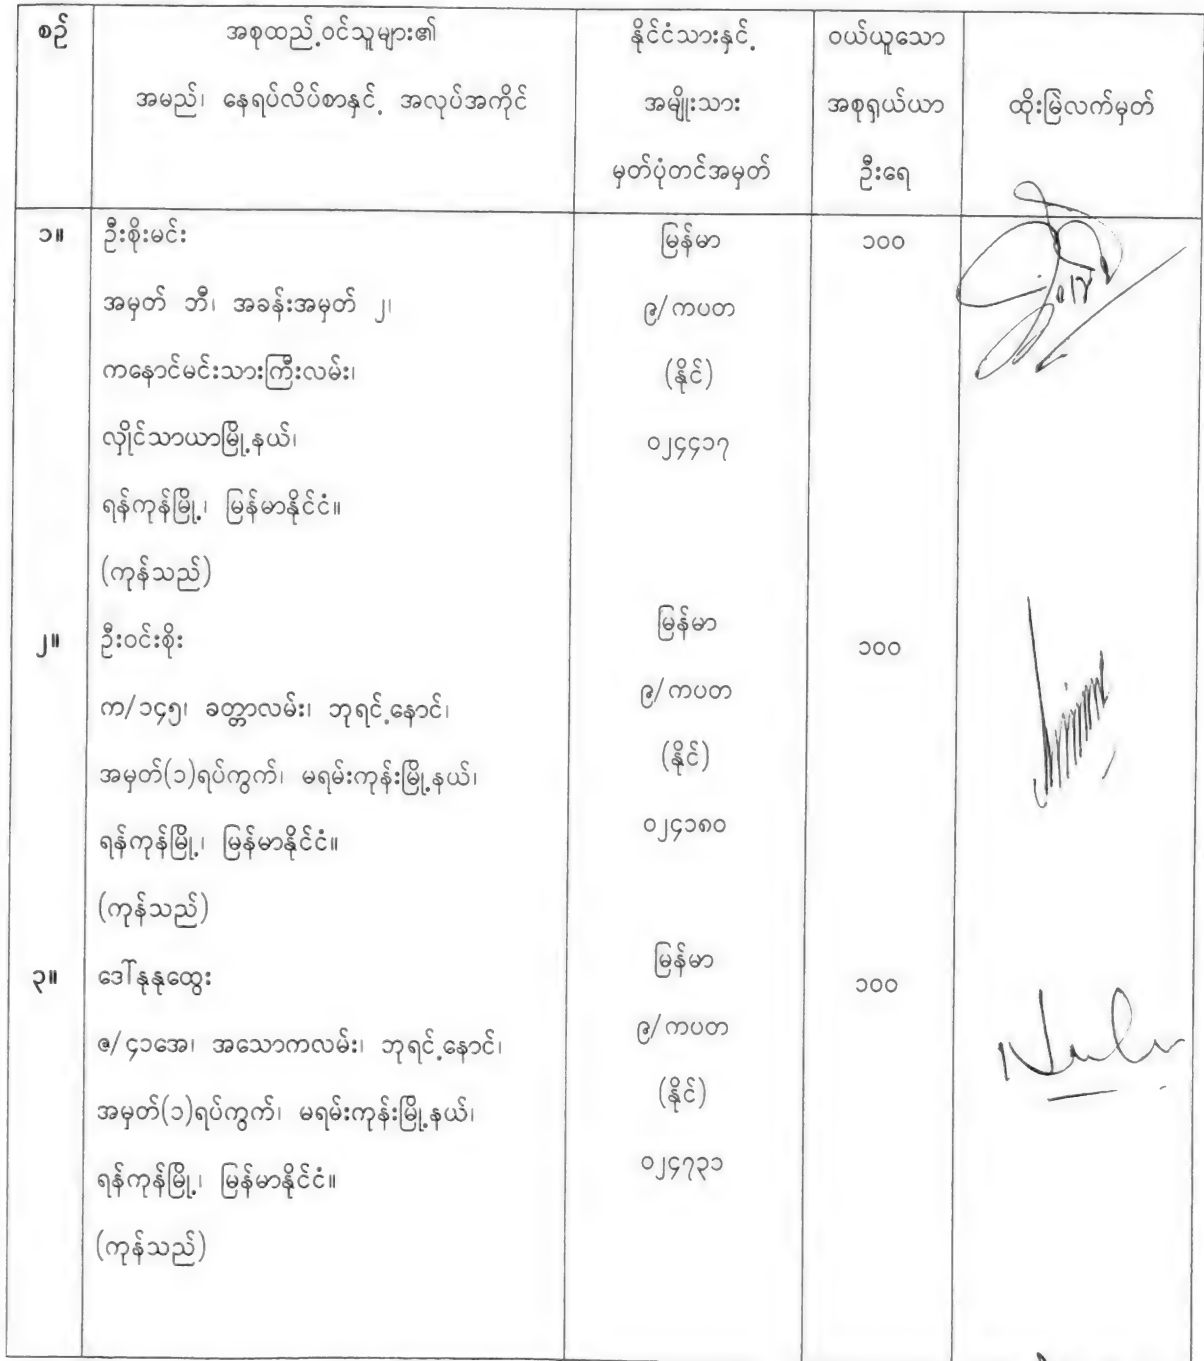 စဉ်
အစုထည့်ဝင်သူများ၏
အမည်၊ နေရပ်လိပ်စာနှင့် အလုပ်အကိုင်
နိုင်ငံသားနှင့်
အမျိုးသား
မှတ်ပုံတင်အမှတ်
ဝယ်ယူသော
အစုရှယ်ယာ
ဦးရေ
ထိုးမြဲလက်မှတ်
၁။
ဦးစိုးမင်း
အမှတ် ဘီ၊ အခန်းအမှတ် ၂၊
ကနောင်မင်းသားကြီးလမ်း၊
လှိုင်သာယာမြို့နယ်၊
ရန်ကုန်မြို့၊ မြန်မာနိုင်ငံ။
(ကုန်သည်)
မြန်မာ
၉/ကပတ
(နိုင်)
၀၂၄၄၁၇
၁၀၀
၂။
ဦးဝင်းစိုး
က/၁၄၅၊ ခတ္တာလမ်း၊ ဘုရင့်နောင်၊
အမှတ်(၁)ရပ်ကွက်၊ မရမ်းကုန်းမြို့နယ်၊
ရန်ကုန်မြို့၊ မြန်မာနိုင်ငံ။
(ကုန်သည်)
မြန်မာ
၉/ကပတ
(နိုင်)
၀၂၄၁၈၀
၁၀၀
၃။
ဒေါ်နုနုထွေး
ဇ/၄၁အေ၊ အသောကလမ်း၊ ဘုရင့်နောင်၊
အမှတ်(၁)ရပ်ကွက်၊ မရမ်းကုန်းမြို့နယ်၊
ရန်ကုန်မြို့၊ မြန်မာနိုင်ငံ။
(ကုန်သည်)
မြန်မာ
၉/ကပတ
(နိုင်)
၀၂၄၇၃၁
၁၀၀